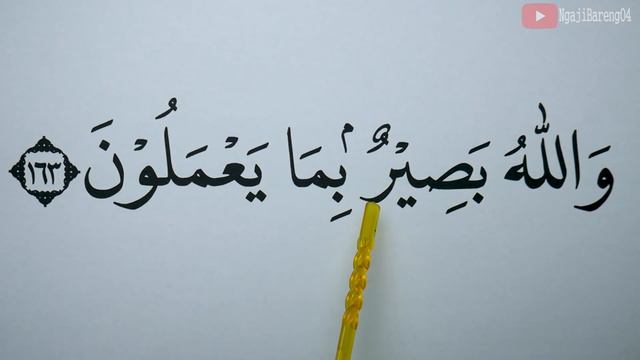 NgajiBareng04
وَاللّٰهُ بَصِيْرٌۢ بِمَا يَعْمَلُوْنَ ١٦٣